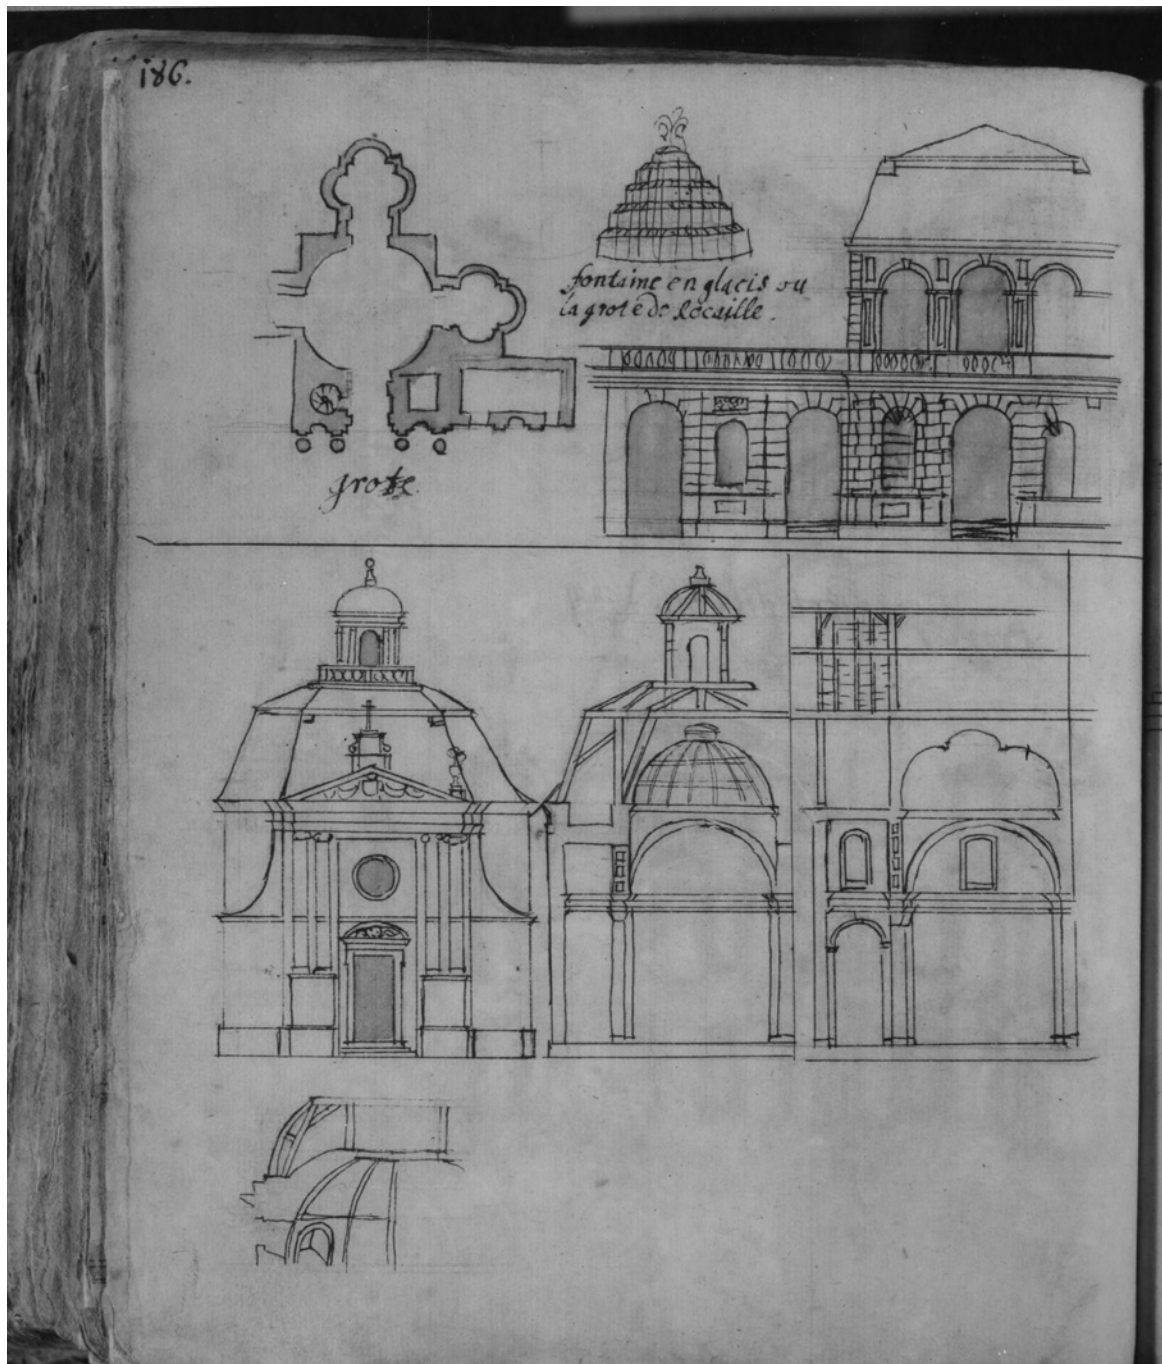 186.
fontaine en glacis ou
la grote de Rocaille.
grote